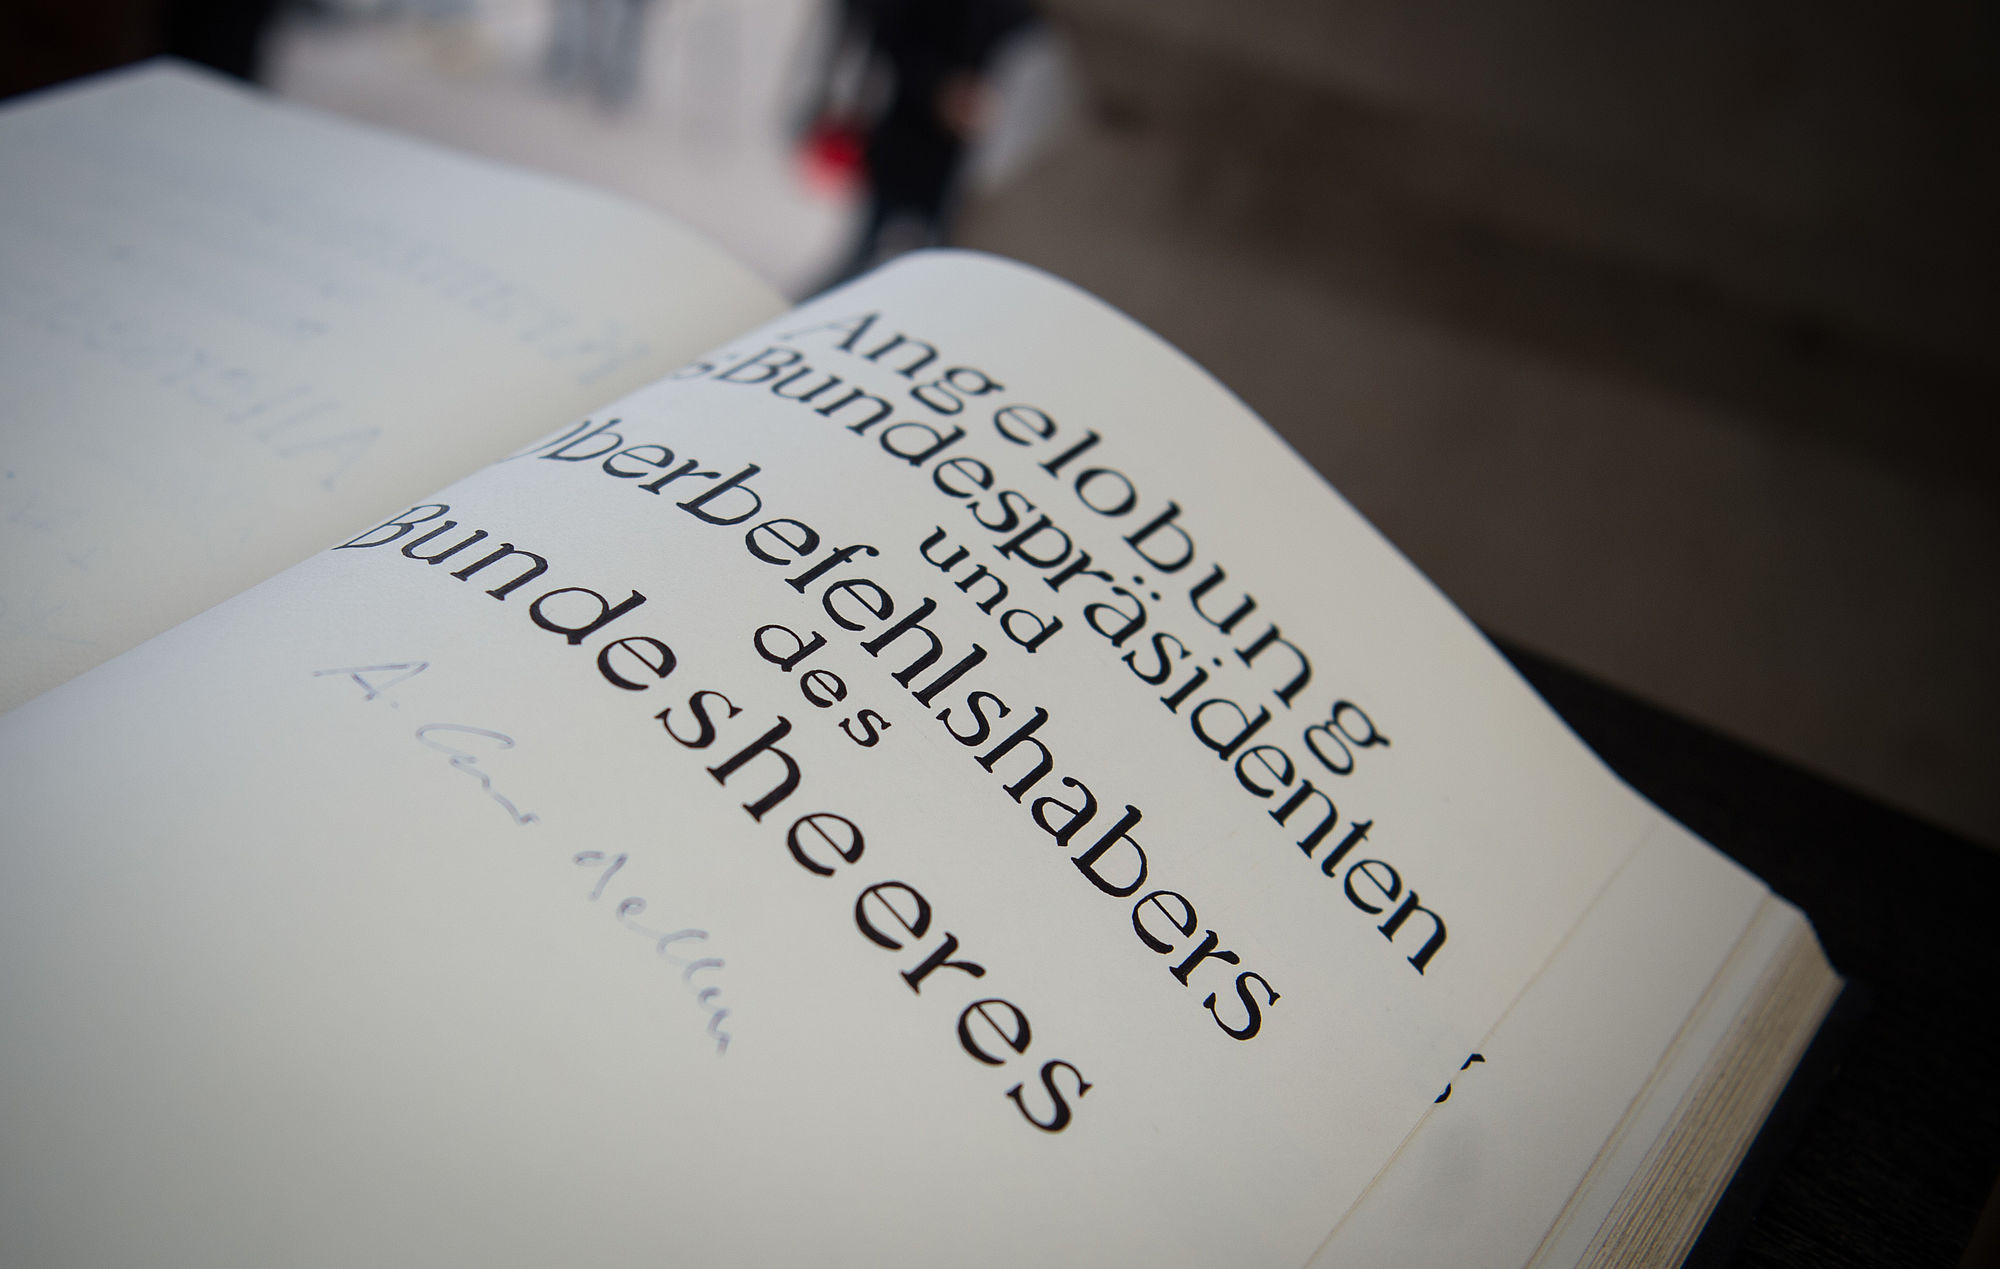 Angelobung
Bundespräsidenten
und
Oberbefehlshabers
des
Bundesheeres
A.